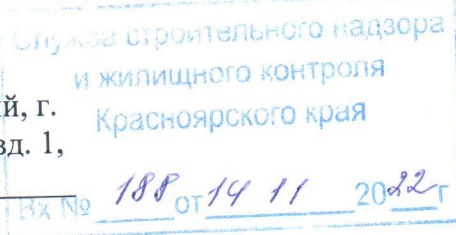 Служба строительного надзора
и жилищного контроля
Красноярского края
й, г.
вд. 1,
Вх № 188 от 14 11 2022 г